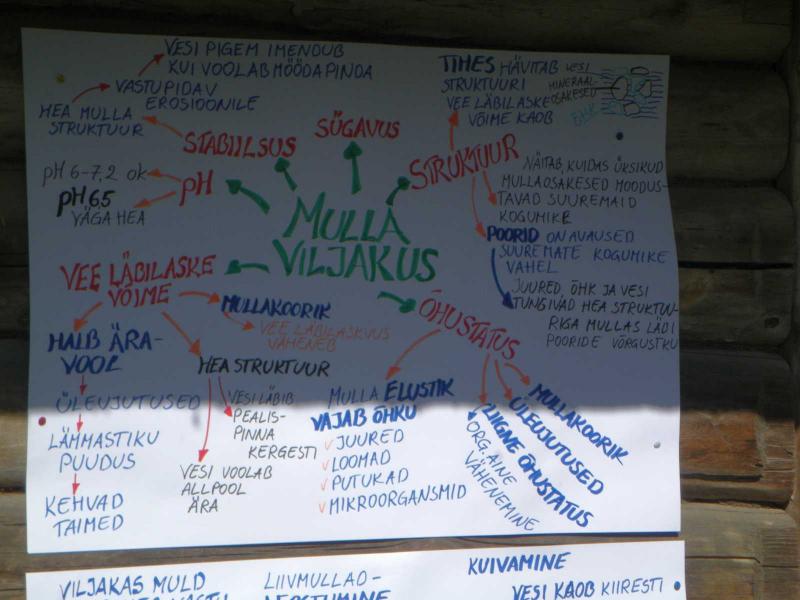 VESI PIGEM IMENDUB
KUI VOOLAB MÖÖDA PINDA
VASTUPIDAV
EROSIOONILE
HEA MULLA
STRUKTUUR
STABIILSUS
SÜGAVUS
TIHES HÄVITAB VESI
STRUKTUURI
VEE LÄBILASKE
VÕIME KAOB
MINERAAL-
OSAKESED
ÕHK
STRUKTUUR
NÄITAB, KUIDAS ÜKSIKUD
MULLAOSAKESED MOODUS-
TAVAD SUUREMAID
KOGUMIKE
POORID ON AVAUSED
SUUREMATE KOGUMIKE
VAHEL
JUURED, ÕHK JA VESI
TUNGIVAD HEA STRUKTUU-
RIGA MULLAS LÄBI
POORIDE VÕRGUSTKU
pH
pH 6-7,2 ok
pH 6,5
VÄGA HEA
MULLA
VILJAKUS
VEE LÄBILASKE
VÕIME
MULLAKOORIK
VEE LÄBILASKVUS
VÄHENEB
HALB ÄRA-
VOOL
ÜLEUJUTUSED
LÄMMASTIKU
PUUDUS
KEHVAD
TAIMED
HEA STRUKTUUR
VESI LÄBIB
PEALIS-
PINNA
KERGESTI
VESI VOOLAB
ALLPOOL
ÄRA
ÕHUSTATUS
MULLA ELUSTIK
VAJAB ÕHKU
JUURED
LOOMAD
PUTUKAD
MIKROORGANSMID
MULLAKOORIK
ÜLEUJUTUSED
LIIGNE ÕHUSTATUS
ORG. AINE
VÄHENEMINE
VILJAKAS MULD
LIIVMULLAD-
KUIVAMINE
VESI KAOB KIIRESTI